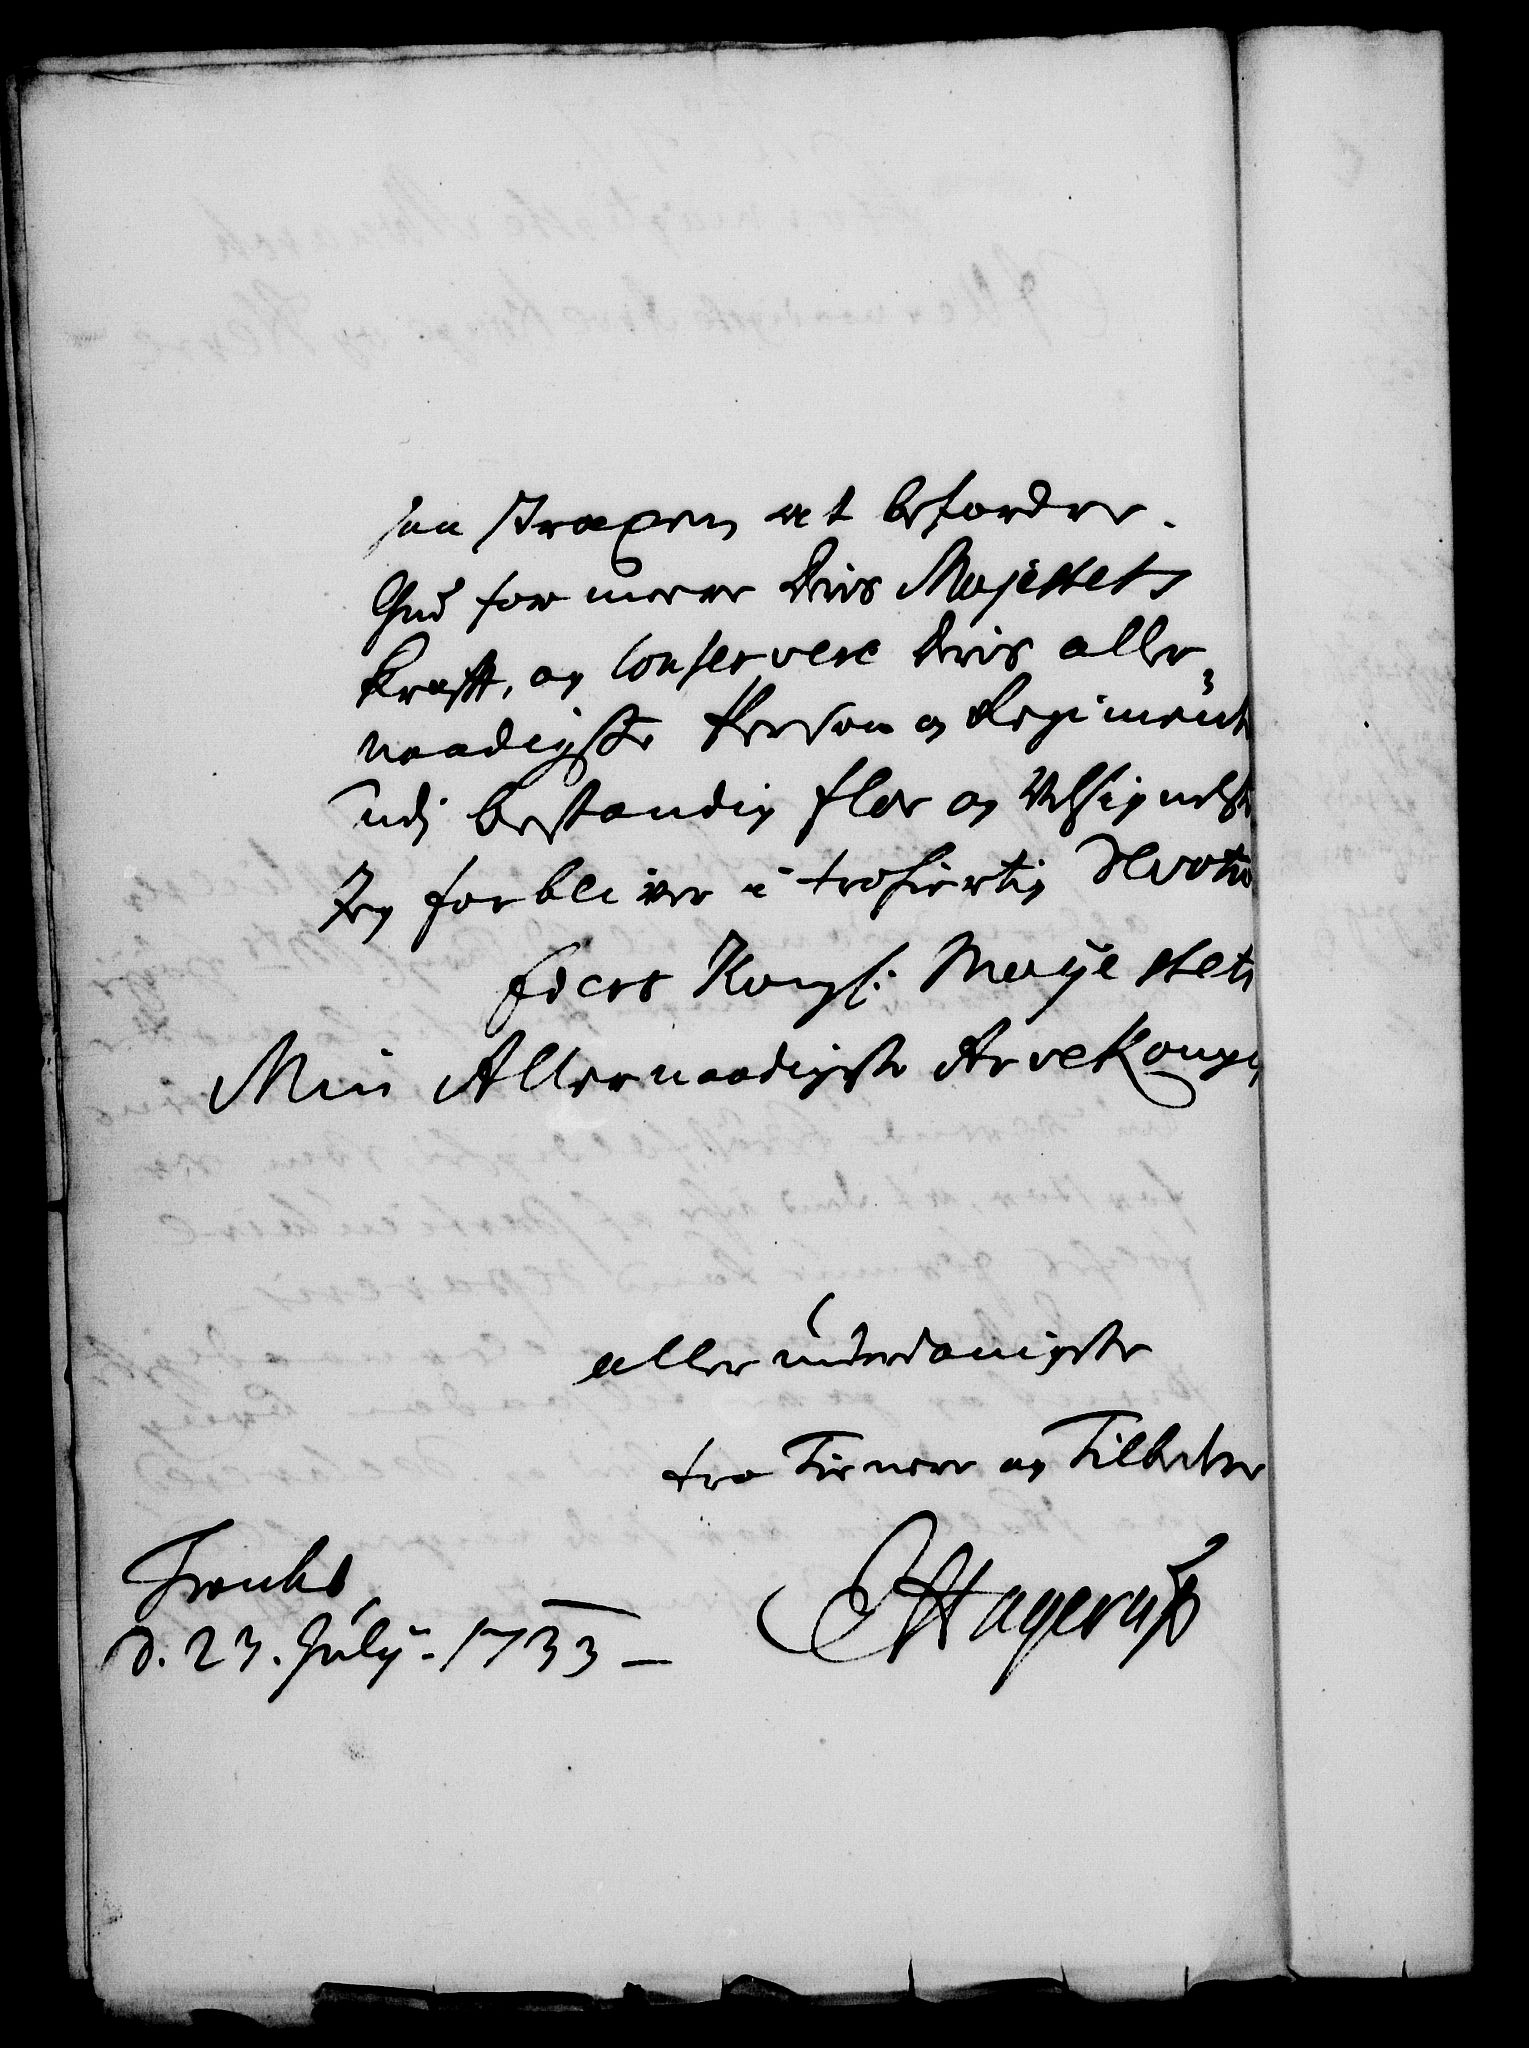 saa straxen at befordre.
Gud formeere Deris Majestets
Krafft, og conservere Deris aller„
naadigste Person og Regiment
udj bestandig flor og Velsignelse
Jeg forbliver i troskyrtig Devotio
Eders Kongl: Majestets
Min Allernaadigste Arve Konges
allerunderdanigste
tro Tienere og Tilbeder
Tronhs
d. 23. Julÿ. 1733 –
E Hagerup